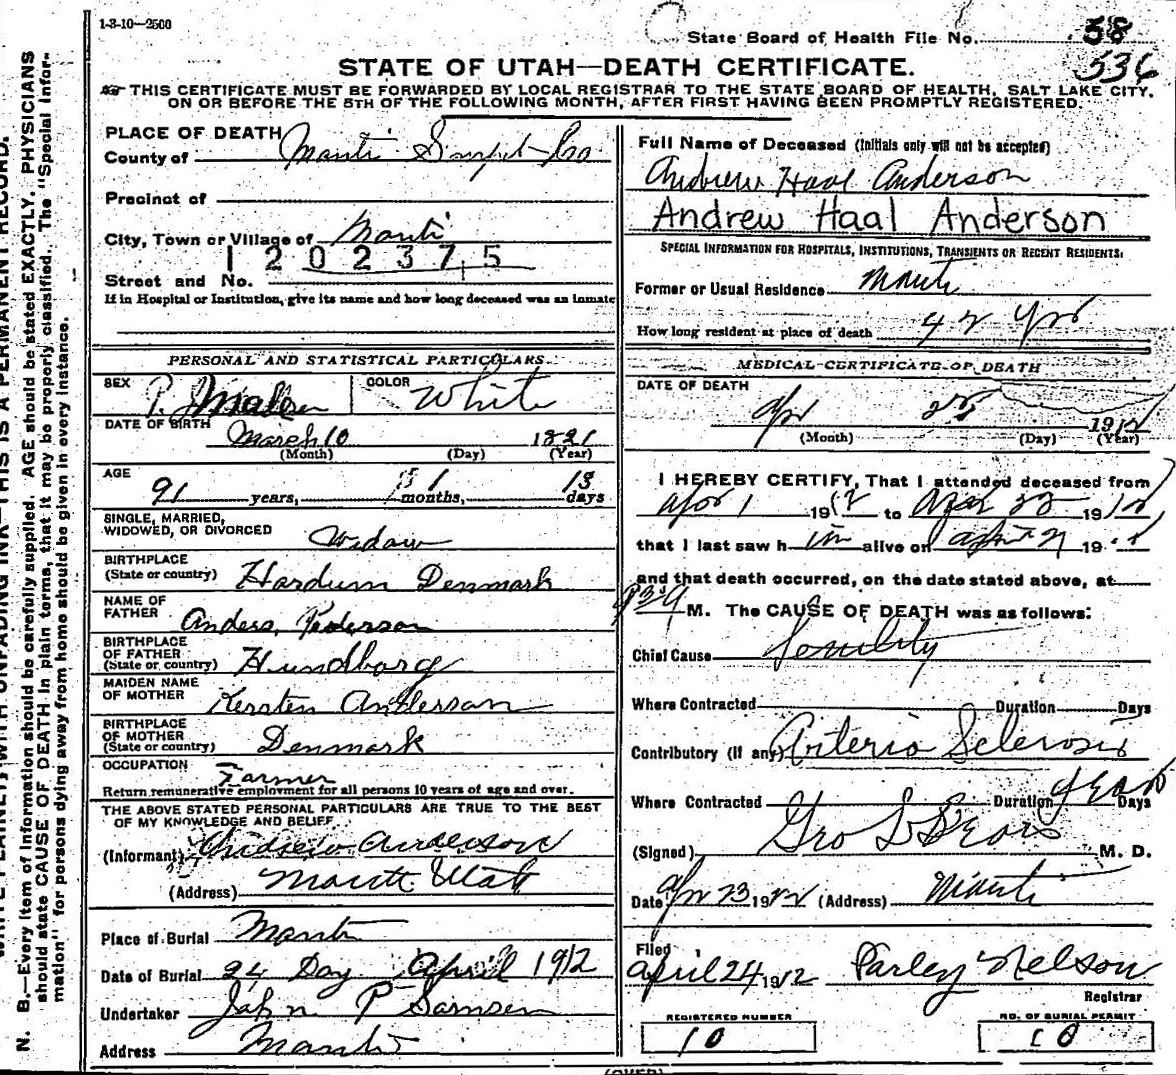 1-3-10—2500
State Board of Health File No. 58
336
STATE OF UTAH—DEATH CERTIFICATE.
THIS CERTIFICATE MUST BE FORWARDED BY LOCAL REGISTRAR TO THE STATE BOARD OF HEALTH, SALT LAKE CITY,
ON OR BEFORE THE 5TH OF THE FOLLOWING MONTH, AFTER FIRST HAVING BEEN PROMPTLY REGISTERED.
PLACE OF DEATH
County of Manti Co
Precinct of
City, Town or Village of Manti
1 2 0 2 3 7 5
Street and No.
If in Hospital or Institution, give its name and how long deceased was an inmate
PERSONAL AND STATISTICAL PARTICULARS.
SEX Male
COLOR White
DATE OF BIRTH March 10 1821
(Month) (Day) (Year)
AGE 91 years, 1 months, 13 days
SINGLE, MARRIED,
WIDOWED, OR DIVORCED Widow
BIRTHPLACE
(State or country) Hardum Denmark
NAME OF
FATHER Anders Pederson
BIRTHPLACE
OF FATHER
(State or country) Hundborg
MAIDEN NAME
OF MOTHER Kersten Anderson
BIRTHPLACE
OF MOTHER
(State or country) Denmark
OCCUPATION Farmer
Return remunerative employment for all persons 10 years of age and over.
THE ABOVE STATED PERSONAL PARTICULARS ARE TRUE TO THE BEST
OF MY KNOWLEDGE AND BELIEF
(Informant) Andrew Anderson
(Address) Manti Utah
Place of Burial Manti
Date of Burial 24 Day April 1912
Undertaker John P
Address Manti
Full Name of Deceased (Initials only will not be accepted)
Andrew Haal Anderson
Andrew Haal Anderson
SPECIAL INFORMATION FOR HOSPITALS, INSTITUTIONS, TRANSIENTS OR RECENT RESIDENTS.
Former or Usual Residence Manti
How long resident at place of death 42 yrs
MEDICAL CERTIFICATE OF DEATH
DATE OF DEATH
Apr 1912
(Month) (Day) (Year)
I HEREBY CERTIFY, That I attended deceased from
Apr 1 1912 to Apr 1912,
that I last saw him alive on April 19
and that death occurred, on the date stated above, at
M. The CAUSE OF DEATH was as follows:
Chief Cause Senility
Where Contracted Duration Days
Contributory (if any) Arterio Sclerosis
Where Contracted Duration Days
(Signed) Geo L Sears M. D.
Date Apr 23 1912 (Address) Manti
Filed
April 24 1912 Parley Nelson
Registrar
REGISTERED NUMBER
10
NO. OF BURIAL PERMIT
10
(OVER)
N. B.—Every item of information should be carefully supplied. AGE should be stated EXACTLY. PHYSICIANS
should state CAUSE OF DEATH in plain terms, that it may be properly classified. The "Special Infor-
mation" for persons dying away from home should be given in every instance.
WRITE PLAINLY WITH UNFADING INK—THIS IS A PERMANENT RECORD.